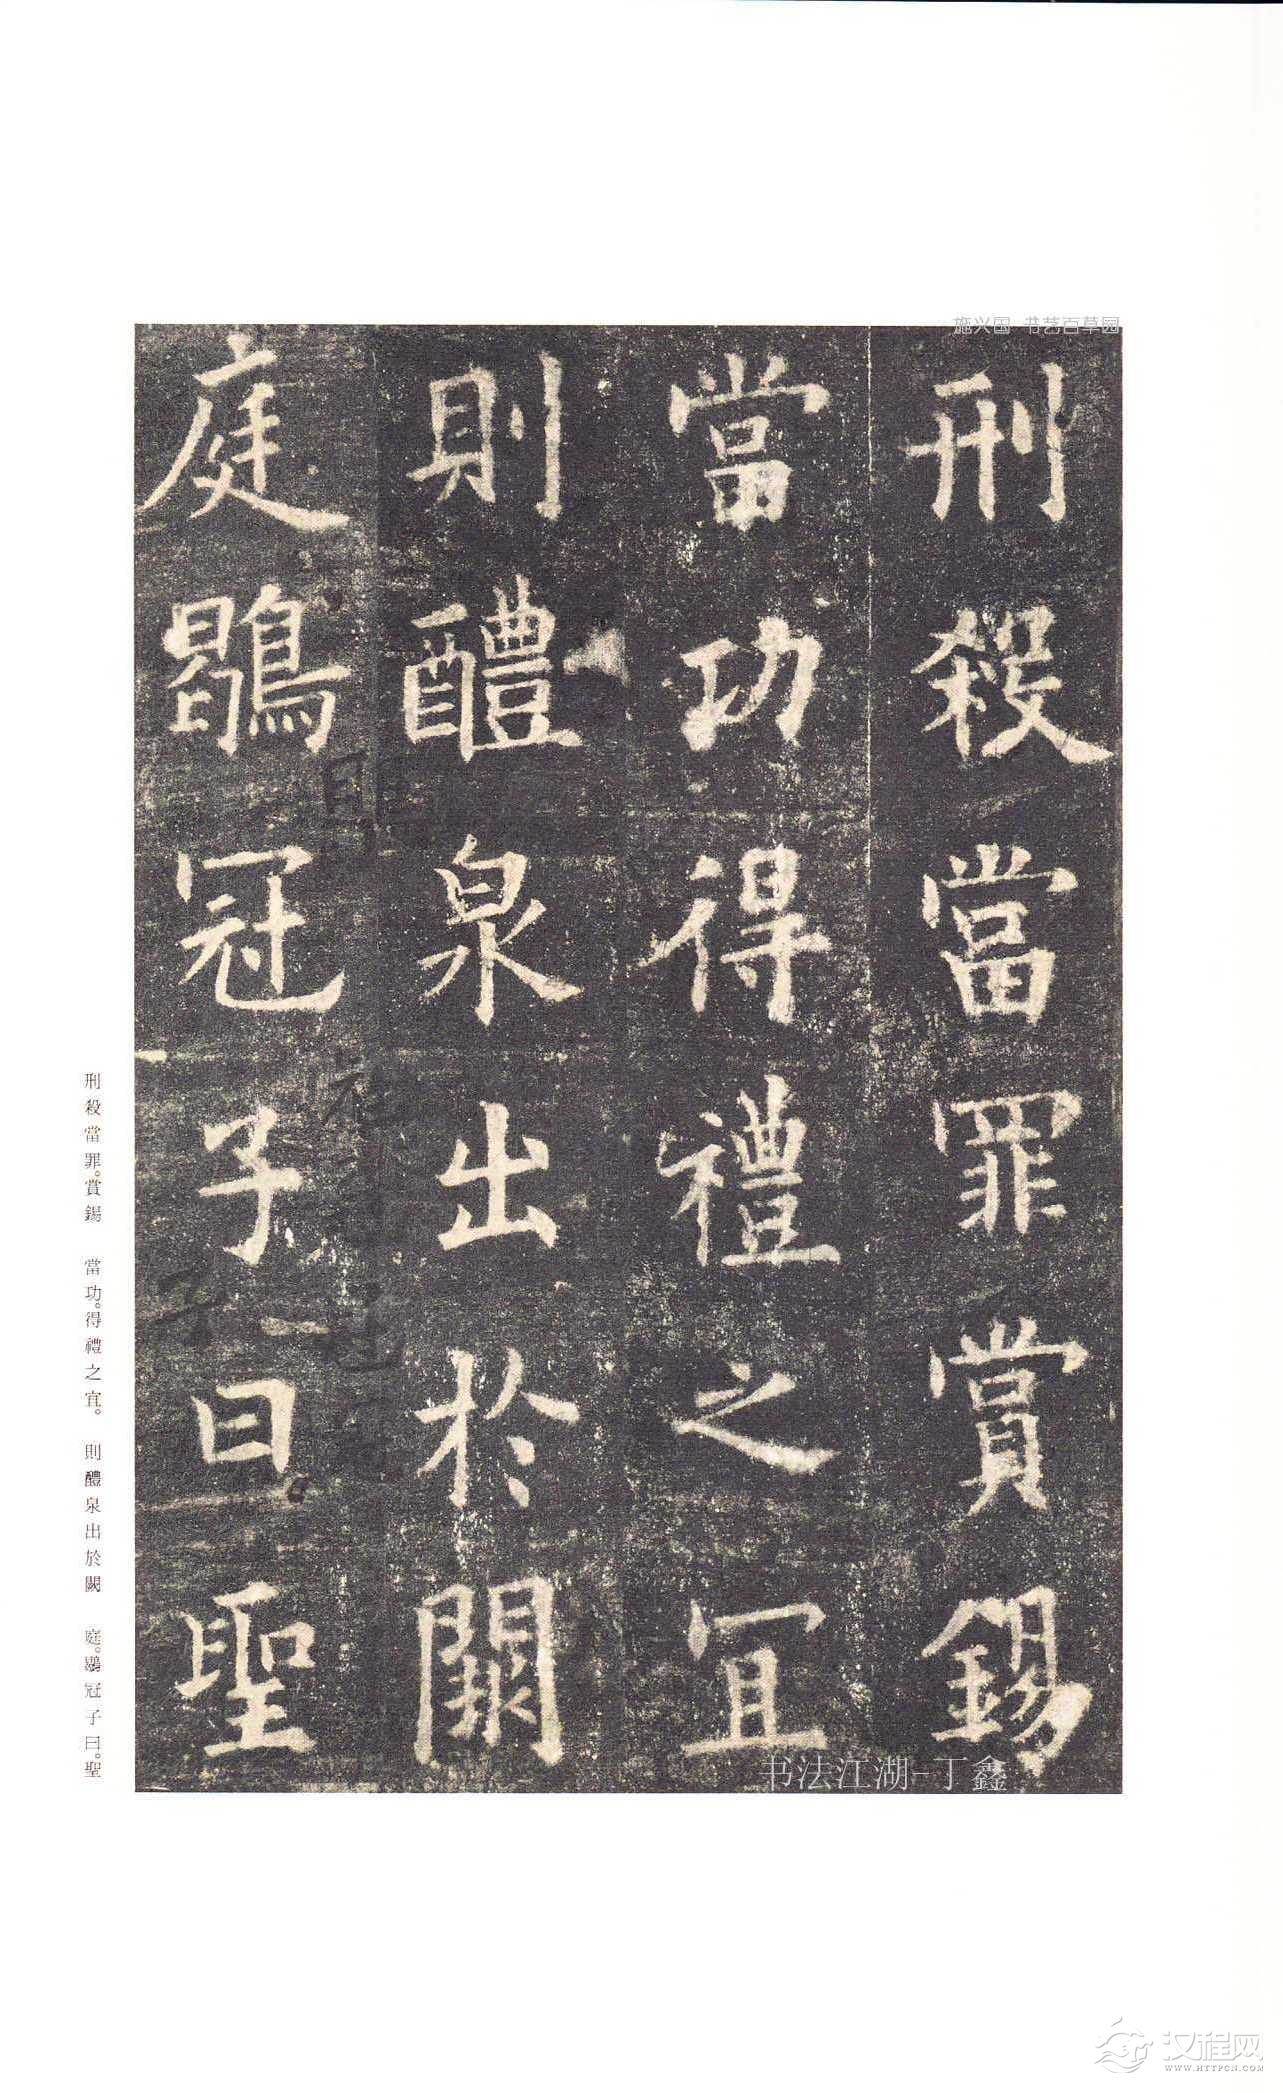 施兴国 书艺百草园
刑殺當罪賞錫
當功得禮之宜
則醴泉出於闕
庭鶡冠子曰聖
书法江湖-丁鑫
刑殺當罪。賞錫 當功。得禮之宜。 則醴泉出於闕 庭。鶡冠子曰。聖
汉程网
WWW.HTTPCN.COM